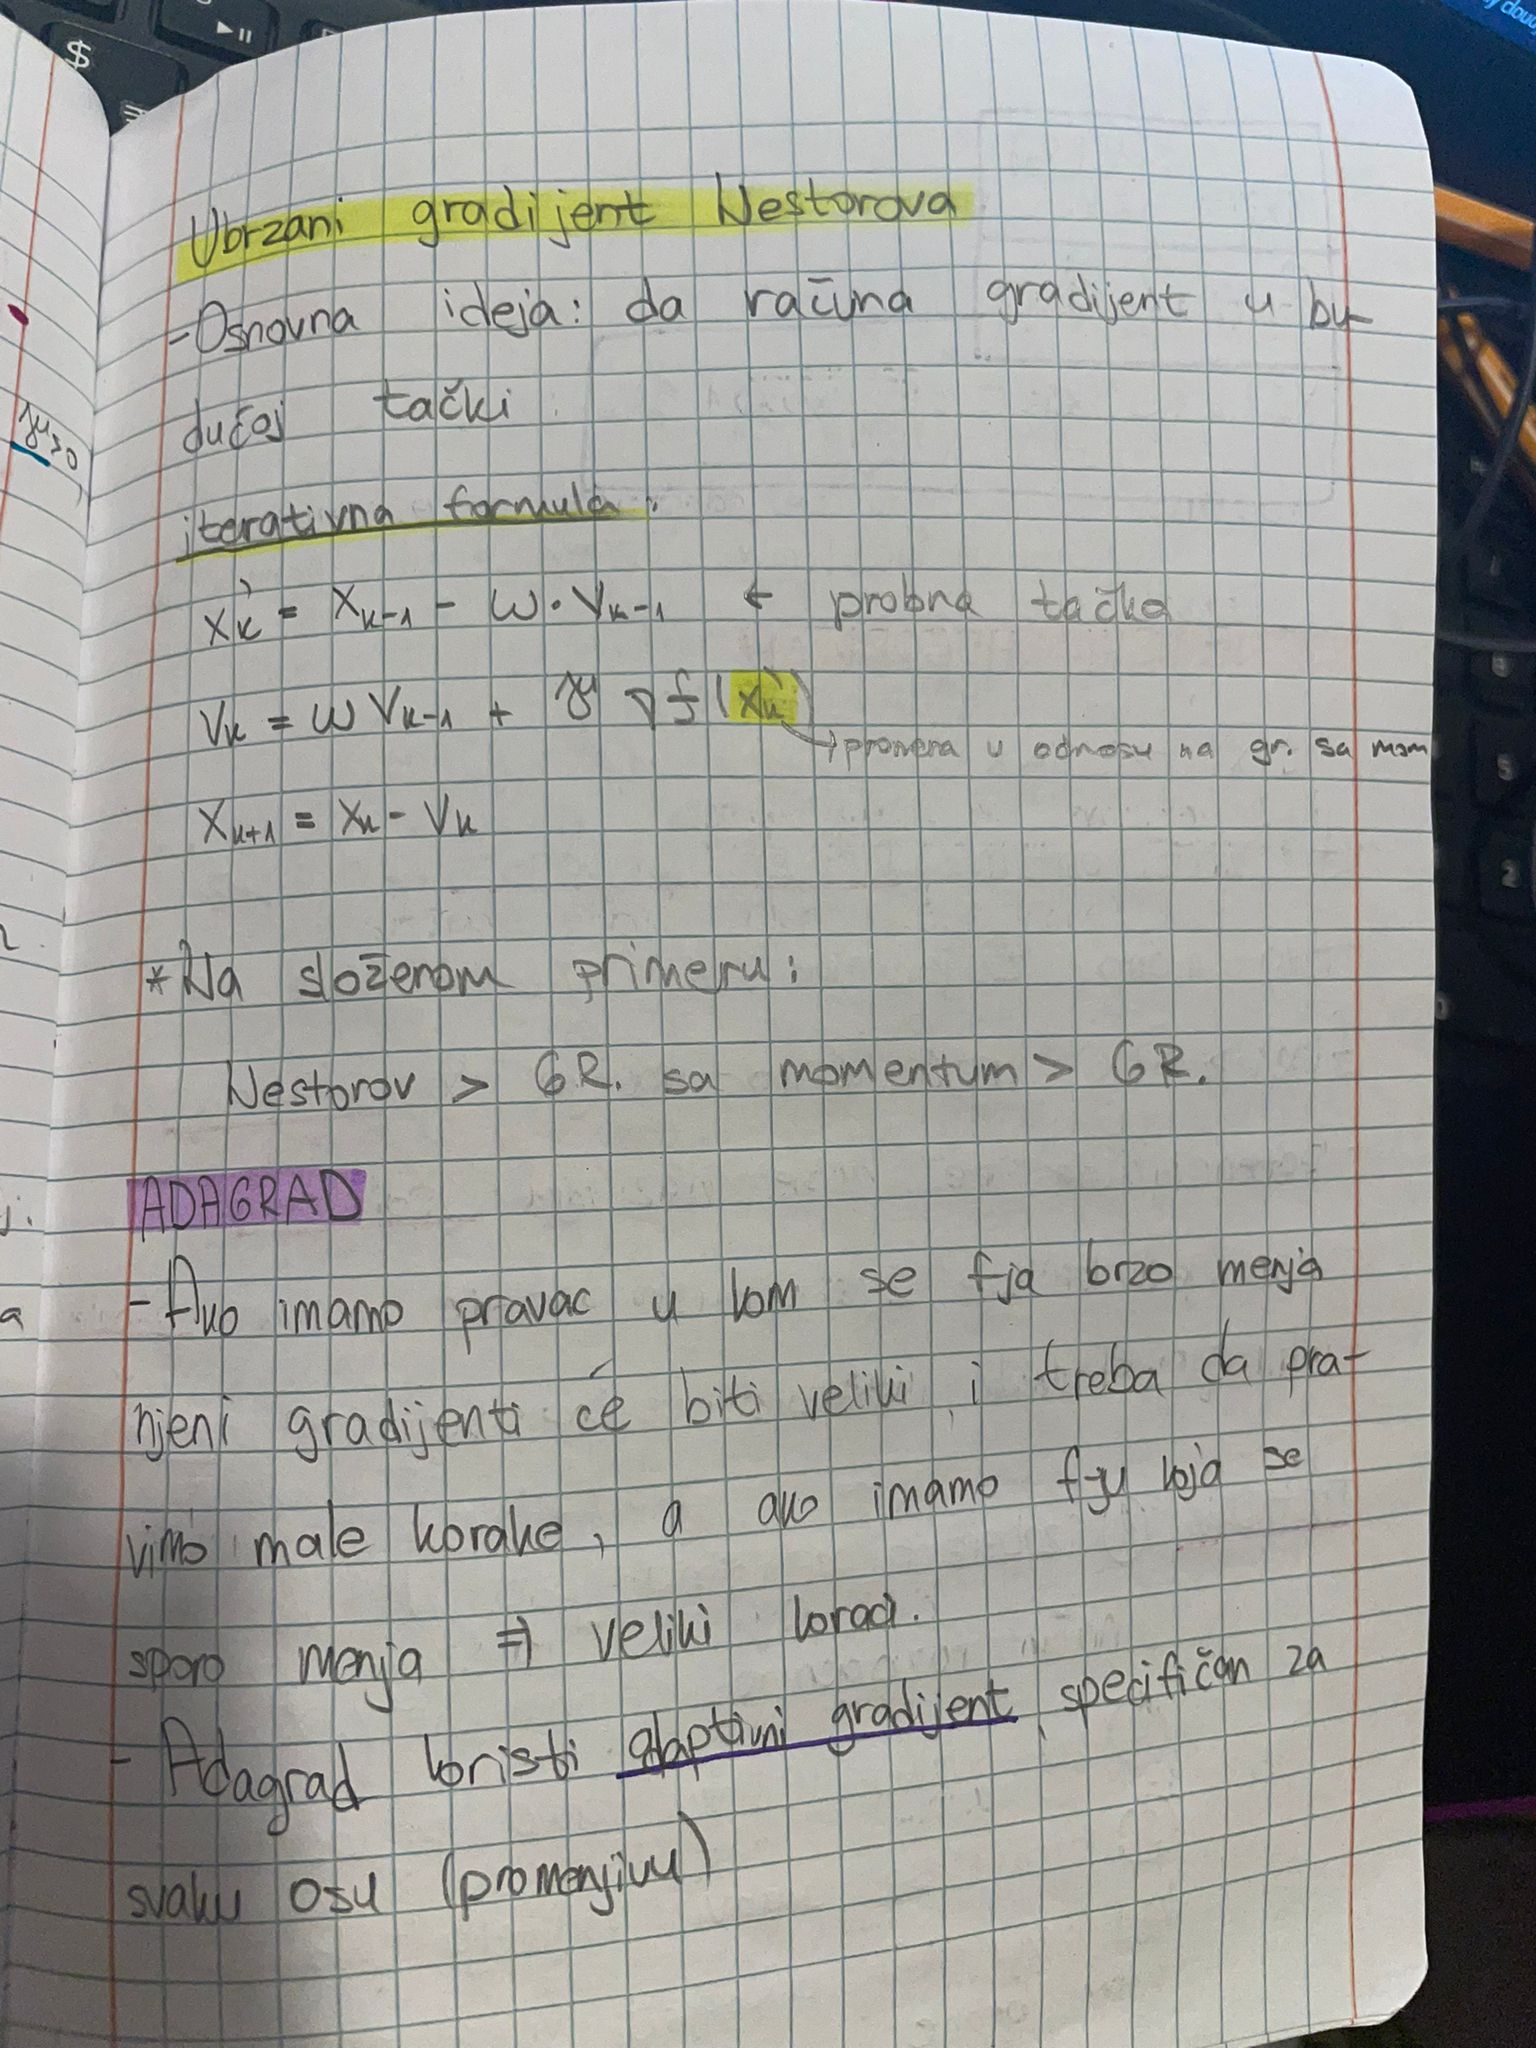 Ubrzani gradijent Nestorova
-Osnovna ideja: da računa gradijent u bu-
dućoj tački
iterativna formula:
x̀ₖ = xₖ₋₁ - ω · vₖ₋₁ ← probna tačka
vₖ = ω vₖ₋₁ + γ ∇f(x̀ₖ)
→ promena u odnosu na gr. sa mom
xₖ₊₁ = xₖ - vₖ
*Na složenom primeru:
Nestorov > GR. sa momentum > GR.
ADAGRAD
- Ako imamo pravac u kom se fja brzo menja
njeni gradijenti će biti veliki i treba da pra-
vimo male korake, a ako imamo f-ju koja se
sporo menja ⇒ veliki koraci.
- Adagrad koristi adaptivni gradijent specifičan za
svaku osu (promenjivu)